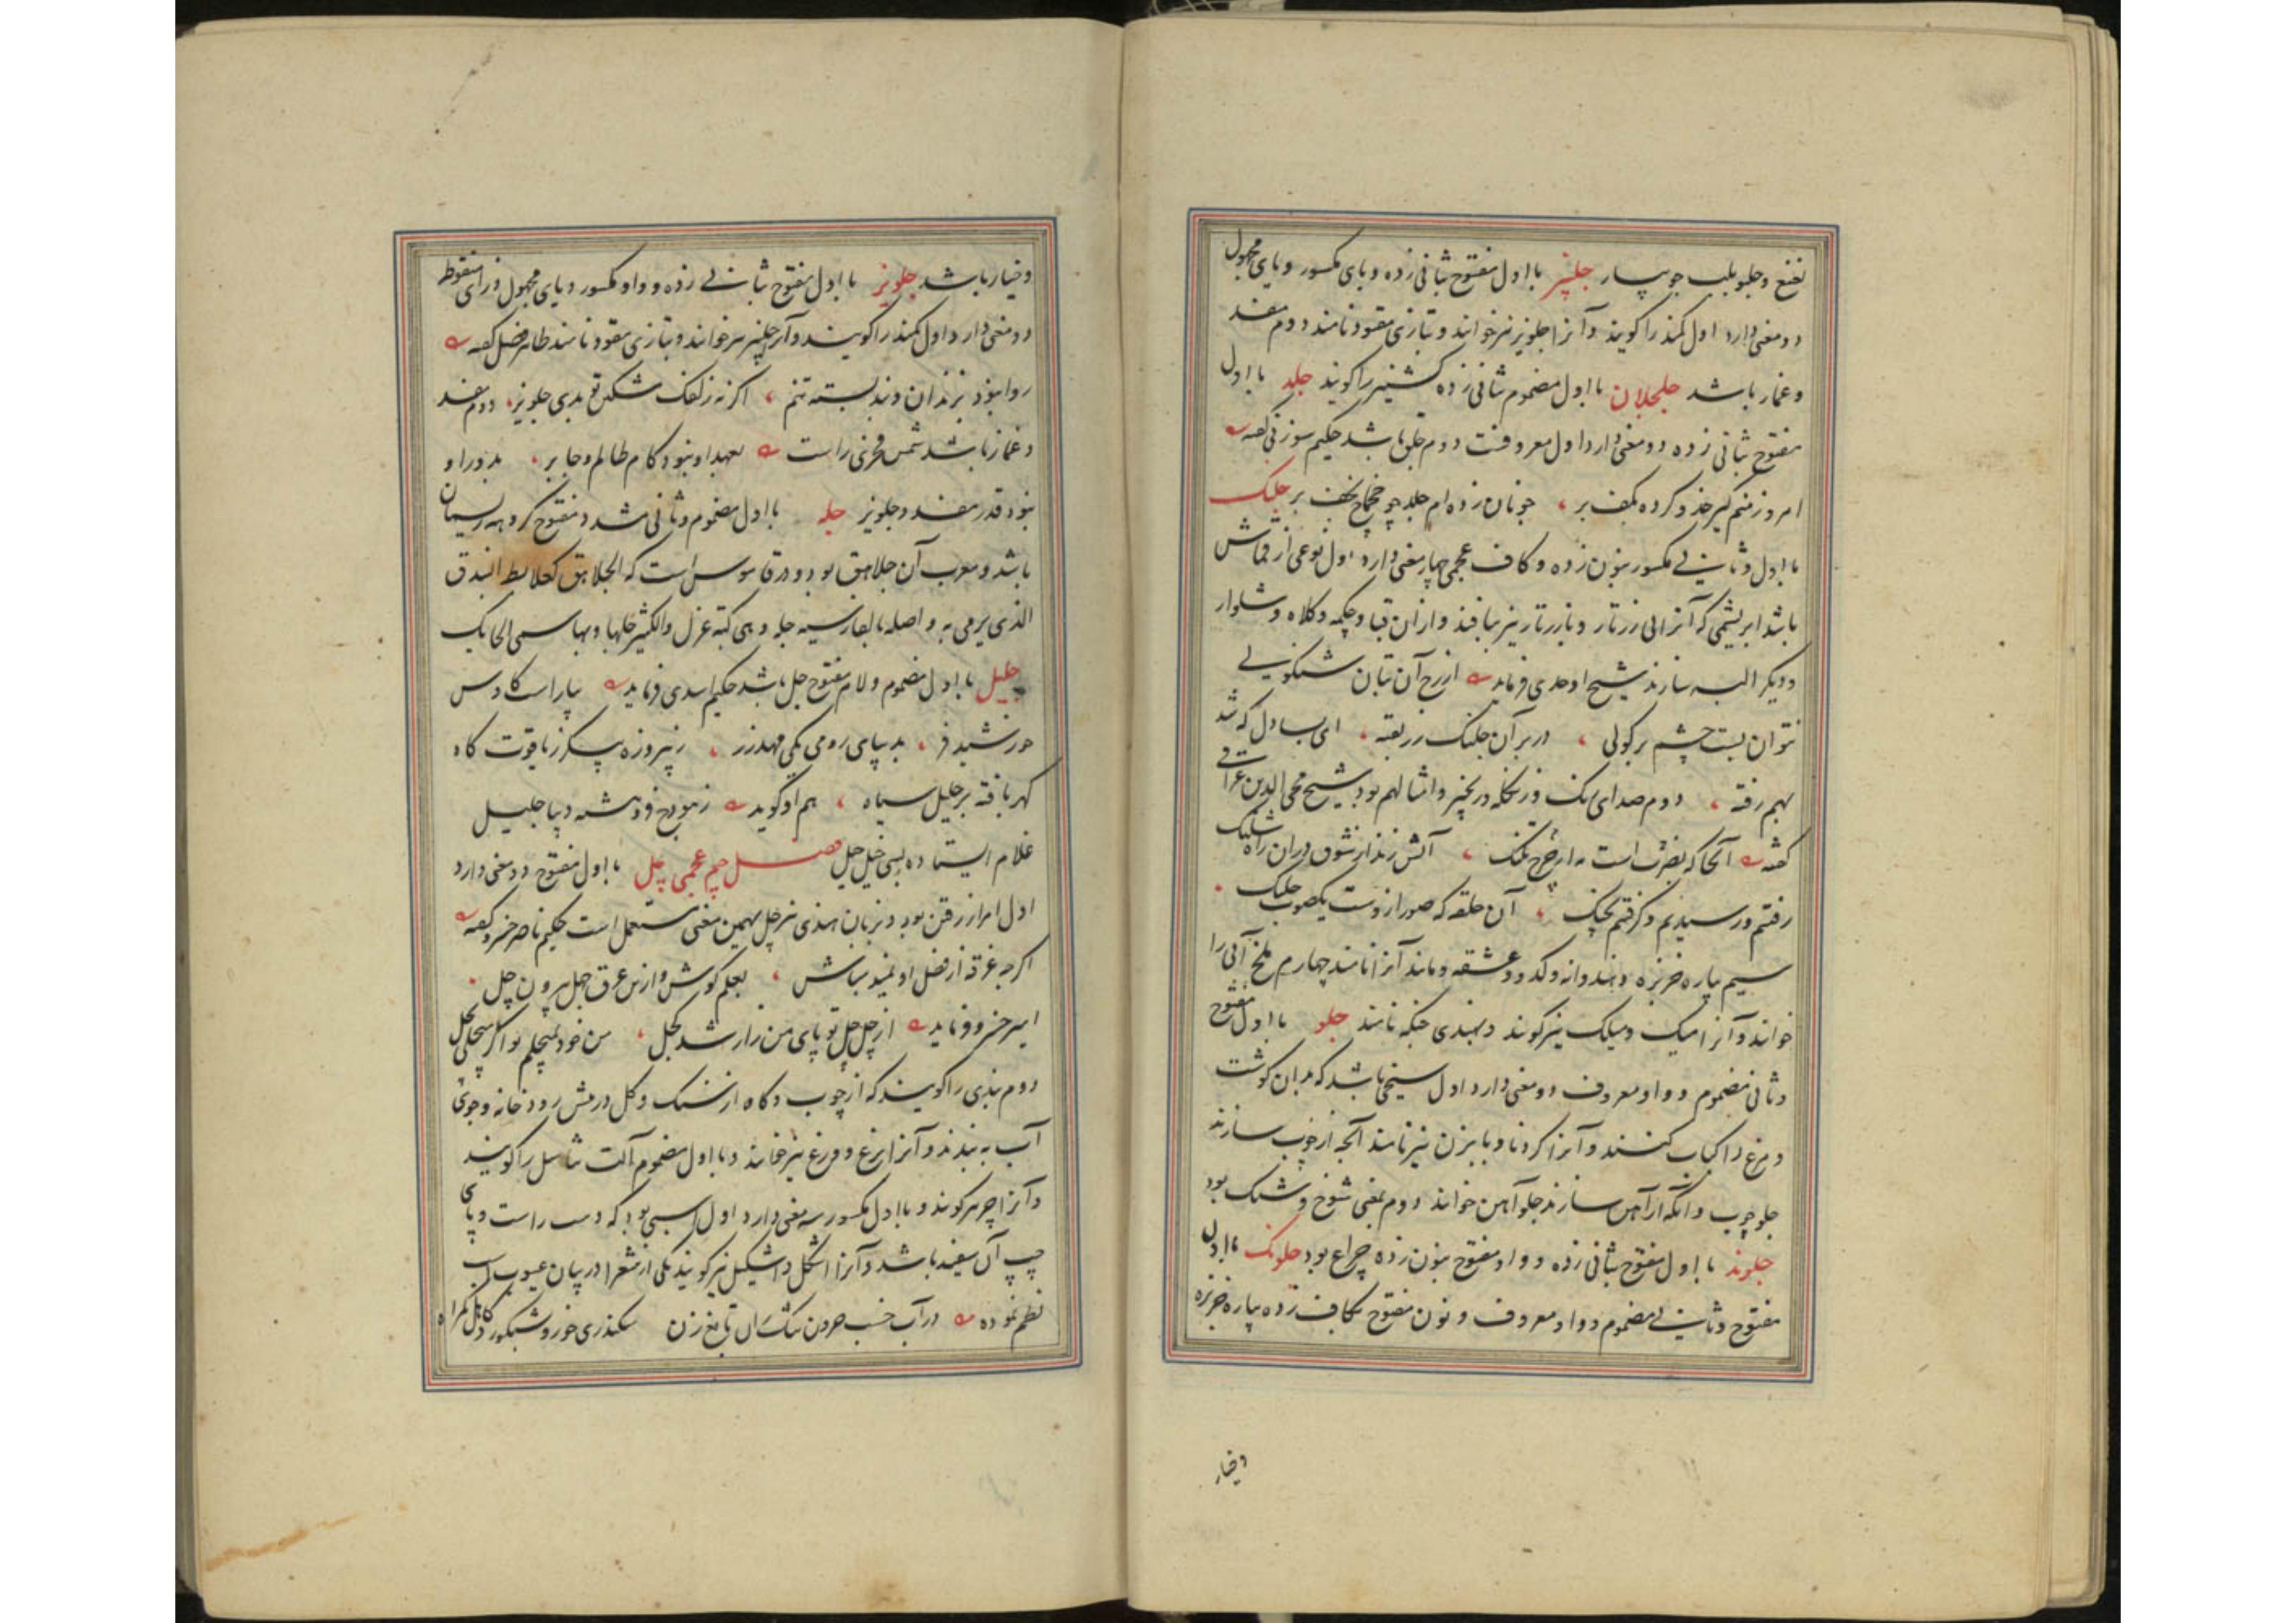 نغنغ و جلو بلب جویبار جلپیز با اول مفتوح بثانی زده و بای مکسور و یای مجهول
دو معنی دارد اول کمند را کویند و آنرا جلویز نیز خوانند و بتازی مقود نامند دوم مفسد
و غماز باشد جلجلان با اول مضموم بثانی زده کشنیز را کویند جلد با اول
مفتوح بثانی زده دو معنی دارد اول معروفست دوم جلق باشد حکیم سوزنی کفته
امروز منم کیر خذو کرده بکف بر جلنک
با اول و ثانی مکسور بنون زده و کاف عجمی چهار معنی دارد اول نوعی از قماش
باشد ابریشمی که آنرا بی زرتار و با زرتار نیز ببافند و ازان قبا و چکمه و کلاه و شلوار
و دیکر البسه سازند شیخ اوحدی فرماید از رخ آن بتان شنکولی
نتوان بست چشم بر کولی در بر آن جلنک زربفته ای بسا دل که شد
بهم رفته دوم صدای زنک و زنکله و زنجیر و امثال هم بود شیخ فخر الدین عراقی
کفته
رفتم و رسیدیم و کرفتم بچنک آن حلقه که صد از وست یکصوب جلنک
سیم پیاره خربزه و هندوانه و کدو و عشقه و مانند آنرا نامند چهارم ملخ آبی را
خوانند و آنرا میک و میلک نیز کویند و بهندی جینکه نامند جلو با اول مفتوح
و ثانی مضموم و واو معروف دو معنی دارد اول سیخی باشد که بدان کوشت
و مرغ را کباب کنند و آنرا کردنا و بابزن نیز نامند آنچه از چوب سازند
جلو چوب و آنکه از آهن سازند جلو آهن خوانند دوم بمعنی شوخ و شنک بود
جلوند با اول مفتوح بثانی زده و واو مفتوح بنون زده چراغ بود جلونک با اول
مفتوح و ثانی مضموم و واو معروف و نون مفتوح بکاف زده پیاره خربزه
و خیار
و خیار باشد جلویز با اول مفتوح بثانی زده و واو مکسور و یای مجهول و زای منقوط
دو معنی دارد اول کمند را کویند و آنرا جلپیز نیز خوانند و بتازی مقود نامند طاهر فضل کفته
روا نبود بزندان و بند بسته تنم اکر نه زلفک مشکین تو بدی جلویز دوم مفسد
و غماز باشد شمس فخری راست بعهد او نبود کام ظالم و جابر بدور او
نبود قدر مفسد و جلویز جله با اول مضموم و ثانی مشدد مفتوح کروهه ریسمان
باشد و معرب آن جلاهق بود و در قاموس است که الجلاهق کعلابط البندق
الذی یرمی به و اصله بالفارسیه جله و هی کبة غزل و الکثیر جلها و بها سمی الحایک
جلیل با اول مضموم و لام مفتوح جل باشد حکیم اسدی فرماید بیاراست کاوس
خورشید فر بدیبای رومی یکی مهد زر ز پیروزه پیکر ز یاقوت کاه
کهر بافته بر جلیل سیاه هم او کوید ز هودج فروهشته دیبا جلیل
غلام ایستاده بسی خیل خیل فصل جیم عجمی چل با اول مفتوح دو معنی دارد
اول امر از رفتن بود و بزبان هندی نیز چل بهمین معنی مستعمل است حکیم ناصر خسرو کفته
اکرچه غرقه از فضل او نمید مباش بعلم کوش و ازین غرق جهل بیرون چل
امیر خسرو فرماید از چل چل تو پای من زار شد کچل من خود نمیچلم تو اکر میچلی بچل
دوم بندی را کویند که از چوب و کاه از سنک و کل در پیش رودخانه و جوی
آب به بندند و آنرا برغ و ورغ نیز خوانند و با اول مضموم آلت تناسل را کویند
و آنرا چر نیز کویند و با اول مکسور سه معنی دارد اول اسبی بود که دست راست و پای
چپ آن سفید باشد و آنرا اشکل و اشکیل نیز کویند یکی از شعرا در بیان عیوب اسب
نظم نموده در آب خسب حرون سکندری خور و شبکور و کاهل و کمراه